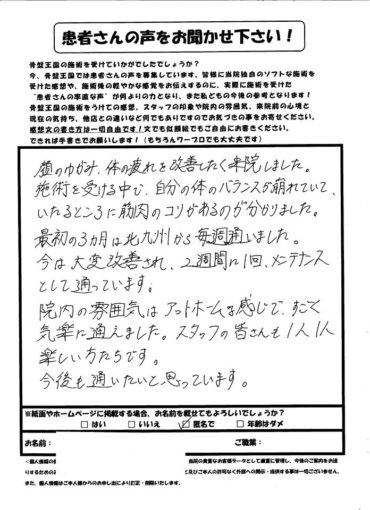 患者さんの声をお聞かせ下さい！
骨盤王国の施術を受けていかがでしたでしょうか？
今、骨盤王国では患者さんの声を募集しています。皆様に当院独自のソフトな施術を
受けた感想や、施術後の軽やかな感覚をお伝えするのに、実際に施術を受けた
"患者さんの率直な声"が何よりの力となり、また私どもの今後の参考となります！
骨盤王国の施術をうけての感想、スタッフの印象や院内の雰囲気、来院前の心境と
現在の気持ち、他店との違いなど何でもありですのでお気づきの事をお寄せください。
感想文の書き方は一切自由です！文でも似顔絵でもご自由にお書きください。
できれば手書きでお願いします！（もちろんワープロでも大丈夫です）
顔のゆがみ、体の疲れを改善したく来院しました。
施術を受ける中で、自分の体のバランスが崩れていて、
いたるところに筋肉のコリがあるのが分かりました。
最初の3カ月は北九州から毎週通いました。
今は大変改善され、2週間に1回、メンテナンス
として通っています。
院内の雰囲気はアットホームな感じで、すごく
気楽に通えました。スタッフの皆さんも1人1人
楽しい方たちです。
今後も通いたいと思っています。
※紙面やホームページに掲載する場合、お名前を載せてもよろしいでしょうか？
□はい □いいえ ☑匿名で □年齢はダメ
お名前： ご職業：
＜個人情報の 当院の貴重なお客様データとして厳重に管理し、今後のご案内をお送
りするための と及びご本人の許可なく外部への開示・提供する事は一切ございません。
また、個人情報はご本人様からのお申し出により訂正・削除いたします。